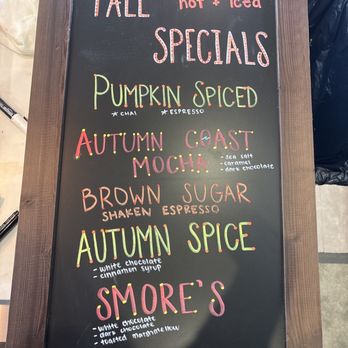 FALL
hot + iced
SPECIALS
PUMPKIN SPICED
* CHAI * ESPRESSO
AUTUMN COAST
MOCHA
- sea salt
- caramel
- dark chocolate
BROWN SUGAR
SHAKEN ESPRESSO
AUTUMN SPICE
- white chocolate
- cinnamon syrup
SMORE'S
- white chocolate
- dark chocolate
- toasted marshmallow